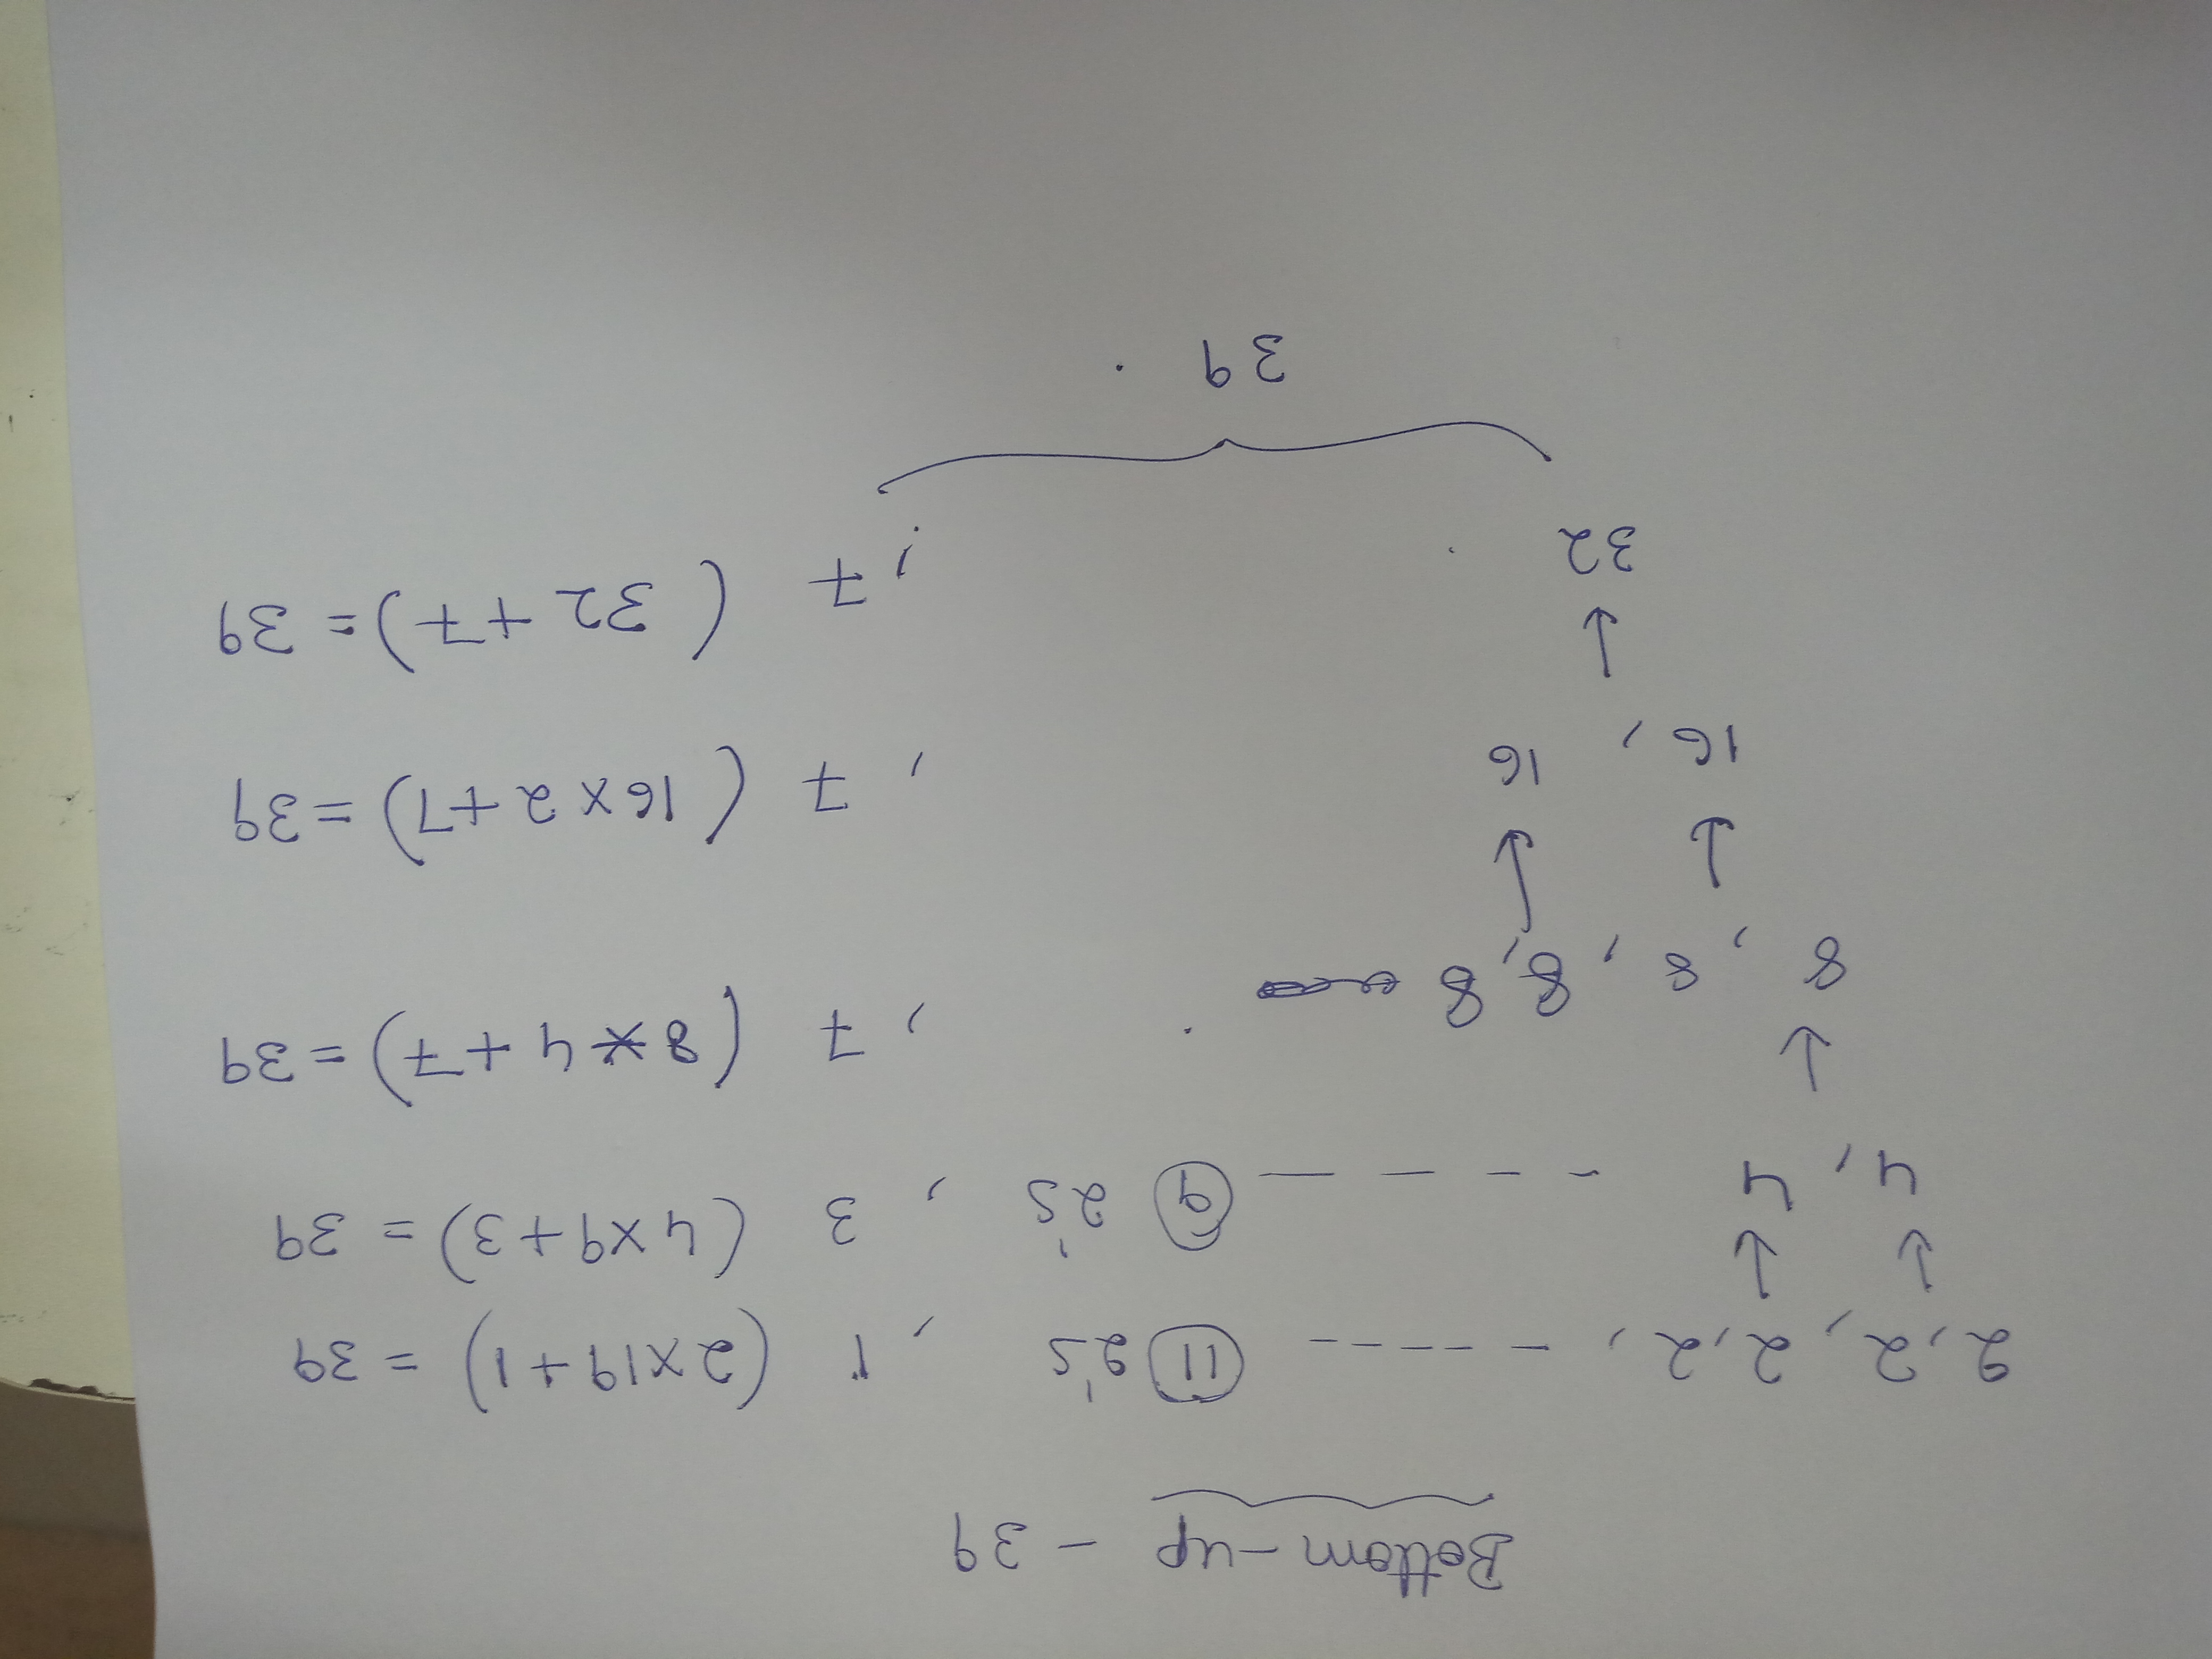 Bottom-up - 39
2, 2, 2, 2, - - - - - 11 2's , 1 (2x19+1) = 39
4, 4 - - - - 9 2's , 3 (4x9+3) = 39
8, 8, 8, 8 , 7 (8*4+7) = 39
16, 16 , 7 (16x2+7) = 39
32 , 7 (32+7) = 39
39.